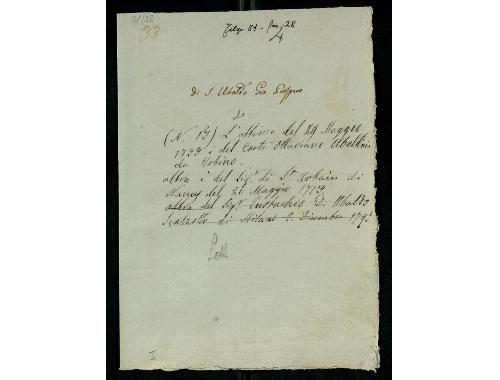 84/28
33
Filza 84 - fasc. 28
di S. Ubaldo Gio
(N. B) L'ultima del 24 Maggio
1737 è del Conte Ottaviano Ubaldini
da Urbino.
altra è del Sig.r di St Urbain di
Nancy del 26 Maggio 1717
altra del Sig.r Eustachio D. Ubaldo
di Milano 2. Dicembre
I